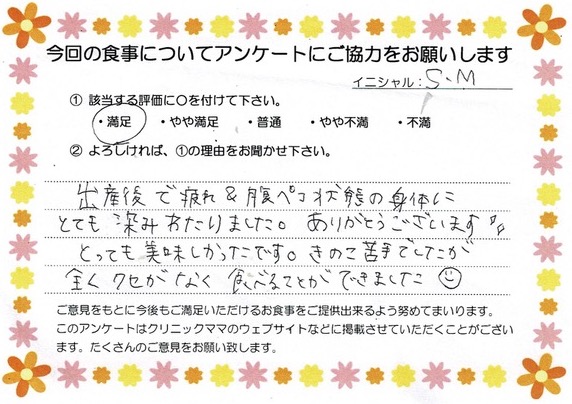 今回の食事についてアンケートにご協力をお願いします
イニシャル：S.M
① 該当する評価に○を付けて下さい。
・満足 ・やや満足 ・普通 ・やや不満 ・不満
② よろしければ、①の理由をお聞かせ下さい。
出産後で疲れ&腹ペコ状態の身体に
とても染みわたりました。ありがとうございます
とっても美味しかったです。きのこ苦手でしたが
全くクセがなく食べることができました
ご意見をもとに今後もご満足いただけるお食事をご提供出来るよう努めてまいります。
このアンケートはクリニックママのウェブサイトなどに掲載させていただくことがござい
ます。たくさんのご意見をお願い致します。